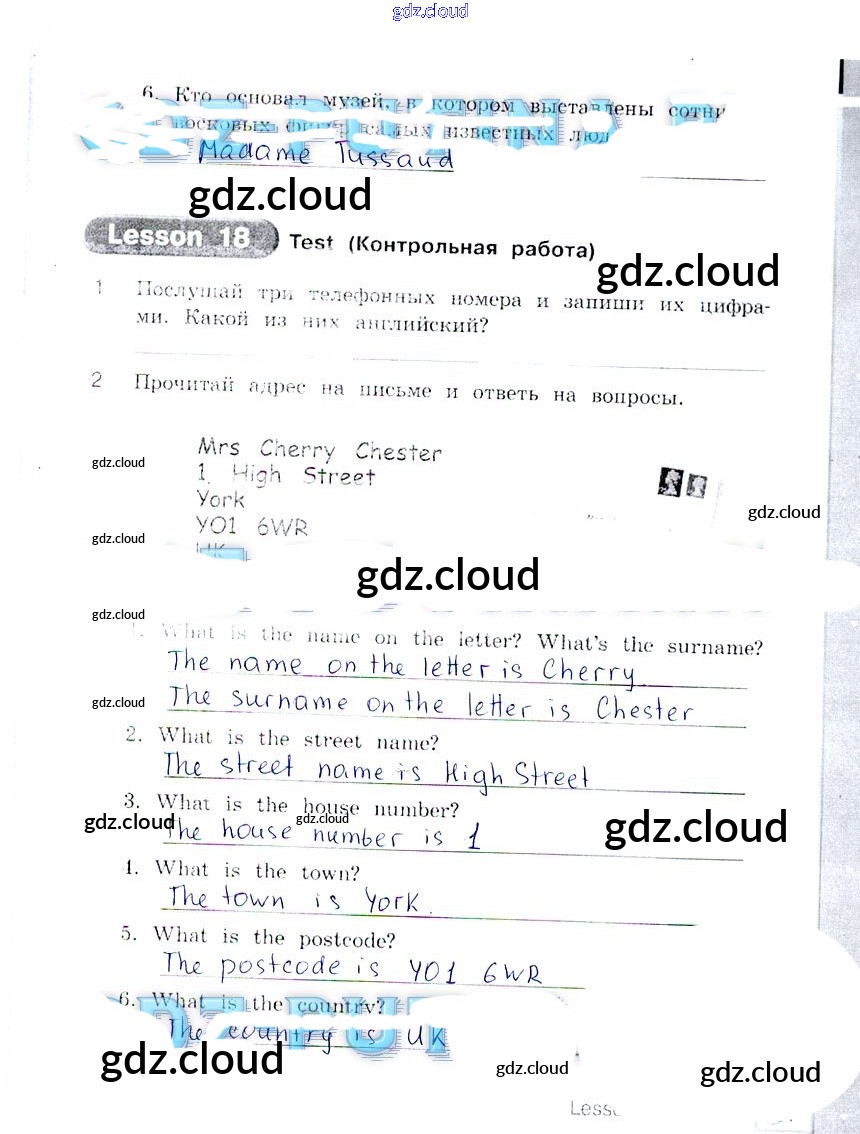 gdz.cloud
6. Кто основал музей, в котором выставлены сотни
восковых фигур самых известных люд
Madame Tussaud
gdz.cloud
Lesson 18 Test (Контрольная работа)
gdz.cloud
1 Послушай три телефонных номера и запиши их цифра-
ми. Какой из них английский?
2 Прочитай адрес на письме и ответь на вопросы.
Mrs Cherry Chester
gdz.cloud
1 High Street
York
gdz.cloud
YO1 6WR
gdz.cloud
UK
gdz.cloud
gdz.cloud
1. What is the name on the letter? What's the surname?
The name on the letter is Cherry
gdz.cloud
The surname on the letter is Chester
2. What is the street name?
The street name is High Street
3. What is the house number?
gdz.cloud gdz.cloud gdz.cloud
The house number is 1
4. What is the town?
The town is York.
5. What is the postcode?
The postcode is YO1 6WR
6. What is the country?
The country is UK
gdz.cloud gdz.cloud gdz.cloud